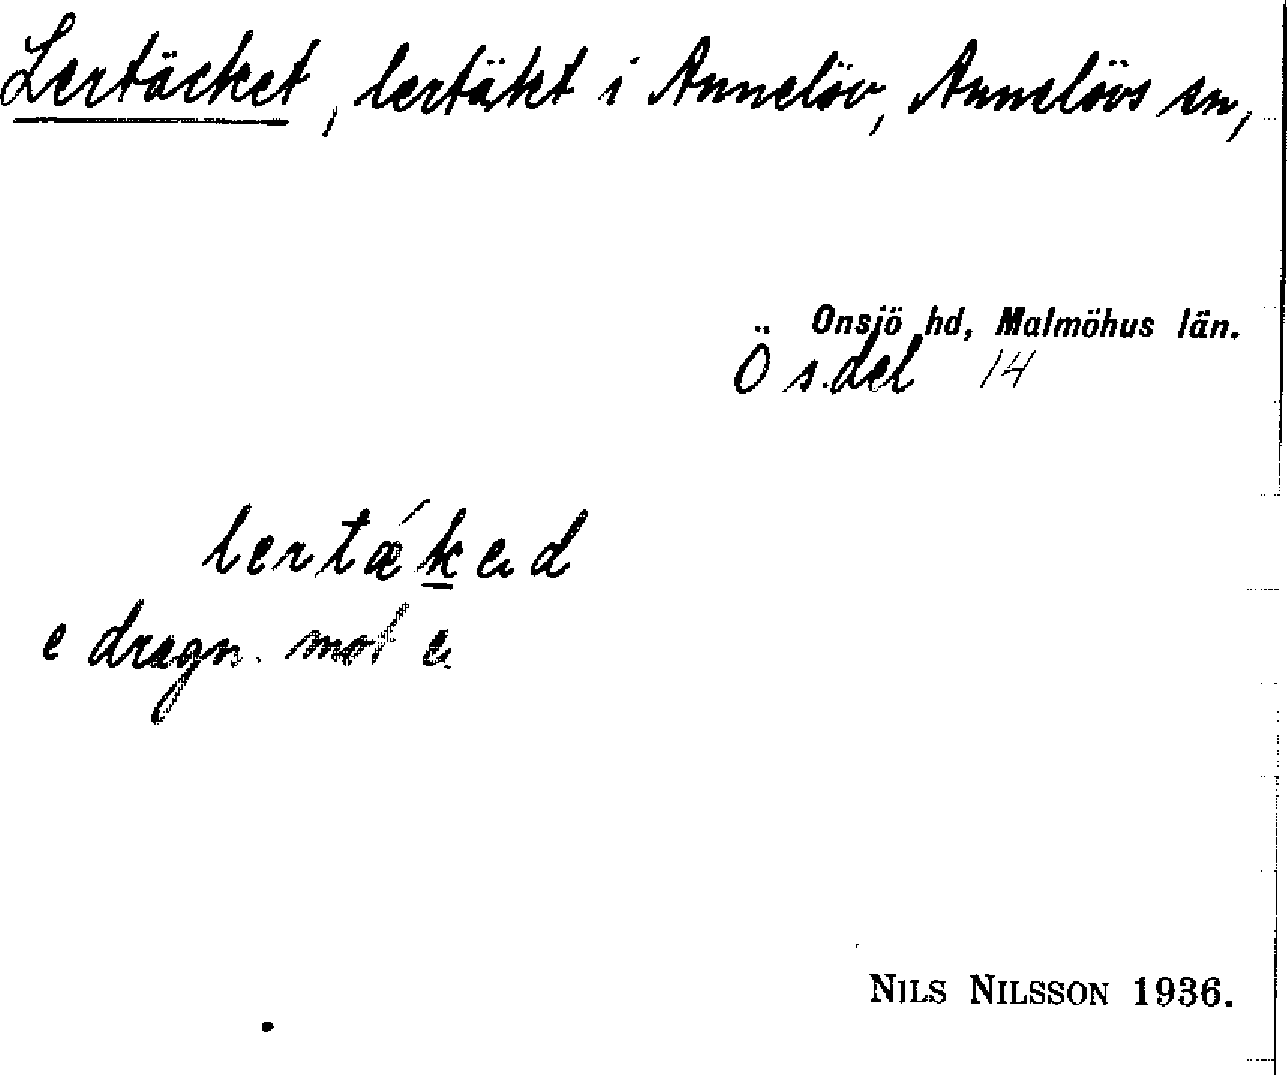 Lertäcket, lertäkt i Annelöv, Annelövs sn,
Onsjö hd, Malmöhus län.
Ö s.del 14
lertækɛd
e dragn. mot ɛ
NILS NILSSON 1936.